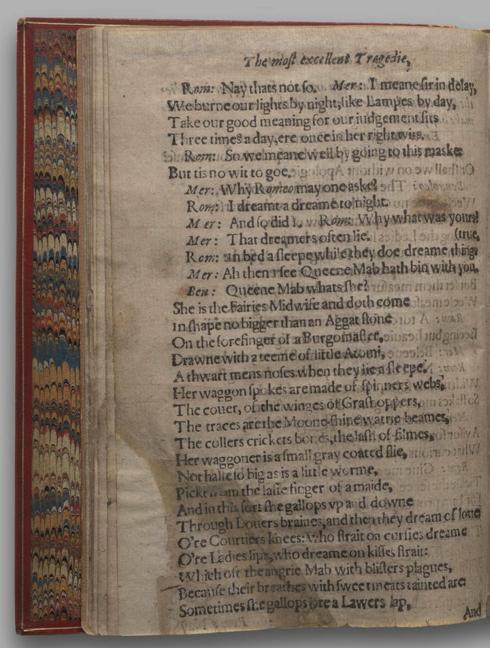 The most excellent Tragedie,
Rom: Nay thats not so. Mer: I meane sir in delay,
We burne our lights by night, like Lampes by day,
Take our good meaning for our iudgement sits
Three times a day, ere once in her right wits.
Rom: So we meane well by going to this maske:
But tis no wit to goe.
Mer: Why Romeo may one aske?
Rom: I dreamt a dreame to night.
Mer: And so did I. Rom: Why what was yours?
Mer: That dreamers often lie. (true,
Rom: in bed a sleepe while they doe dreame things
Mer: Ah then I see Queene Mab hath bin with you,
Ben: Queene Mab whats she?
She is the Fairies Midwife and doth come
In shape no bigger than an Aggat stone
On the forefinger of a Burgomaster,
Drawne with a teeme of little Atomi,
A thwart mens noses when they lie a sleepe.
Her waggon spokes are made of spinners webs,
The couer, of the winges of Grashoppers,
The traces are the Moone-shine watrie beames,
The collers crickets bones, the lash of filmes,
Her waggoner is a small gray coated flie,
Not halfe so big as is a little worme,
Pickt from the lasie finger of a maide,
And in this sort she gallops vp and downe
Through Louers braines, and then they dream of loue
O're Courtiers knees: who strait on cursies dreame
O're Ladies lips, who dreame on kisses strait:
Which oft the angrie Mab with blisters plagues,
Because their breathes with sweetmeats tainted are:
Sometimes she gallops ore a Lawers lap,
And